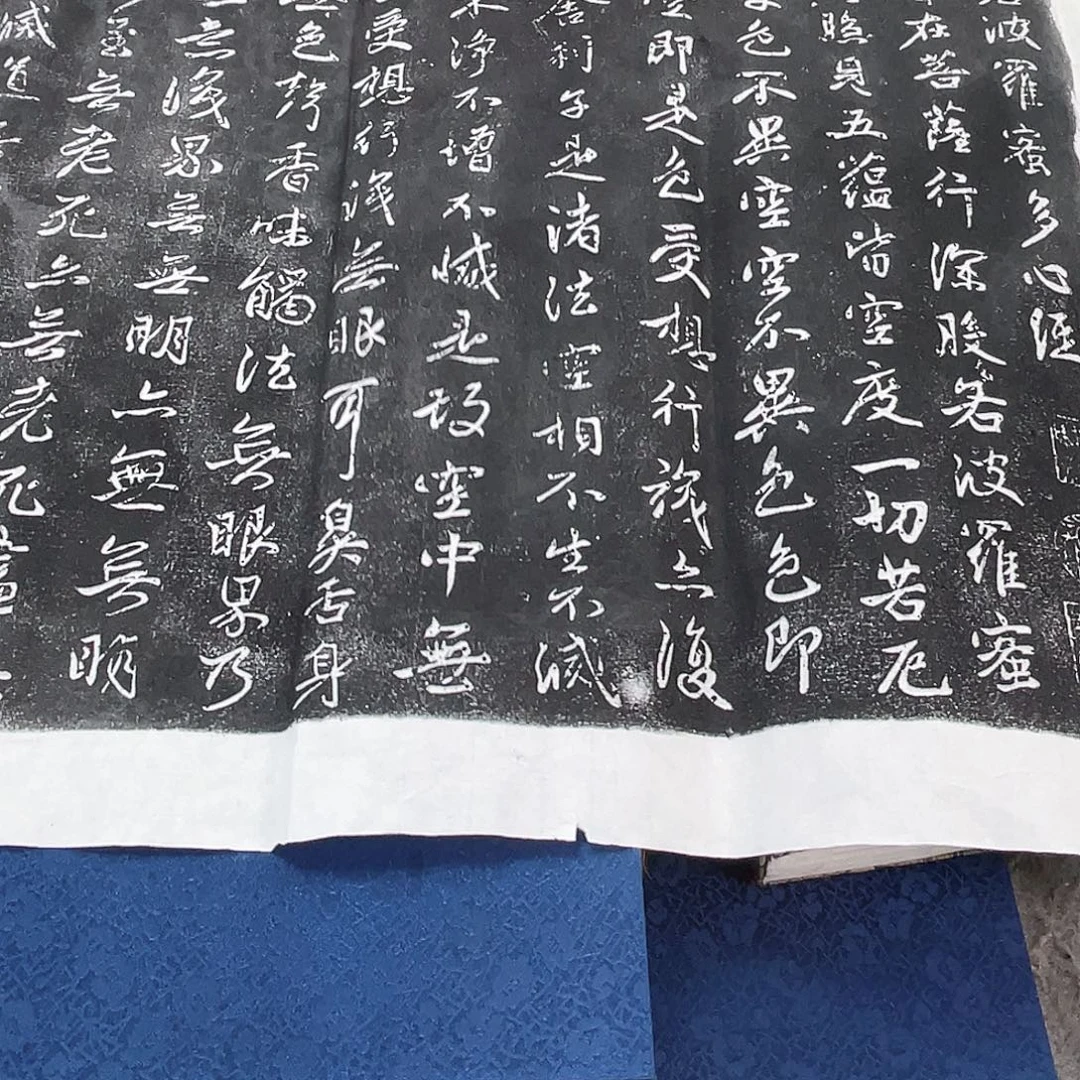 波羅蜜多心經
在菩薩行深般若波羅蜜
照見五蘊皆空度一切苦厄
色不異空空不異色色即
空即是色受想行識亦復
舍利子是諸法空相不生不滅
淨不增不減是故空中無
受想行識無眼耳鼻舌身
色聲香味觸法無眼界乃
意識界無無明亦無無明
至無老死亦無老死
滅道